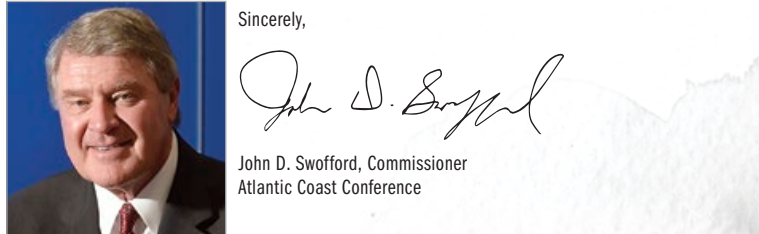 Sincerely,
John D. Swofford
John D. Swofford, Commissioner
Atlantic Coast Conference